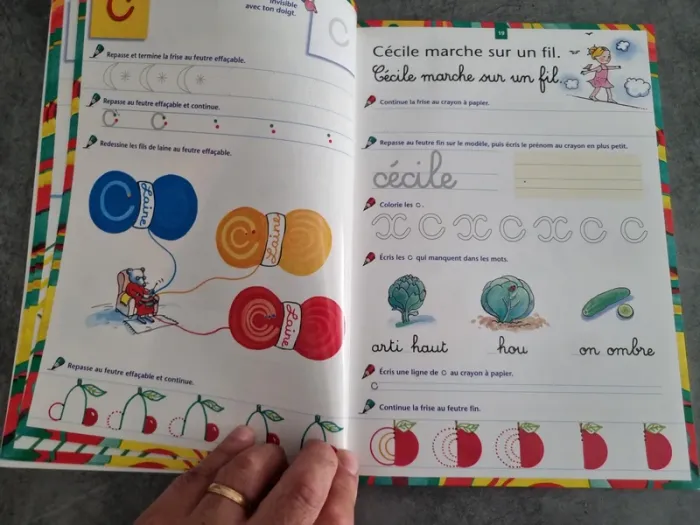 invisible
avec ton doigt.
C
C
Repasse et termine la frise au feutre effaçable.
Repasse au feutre effaçable et continue.
c c
Redessine les fils de laine au feutre effaçable.
C Laine
C Laine
Laine
Repasse au feutre effaçable et continue.
19
Cécile marche sur un fil.
Cécile marche sur un fil.
Continue la frise au crayon à papier.
Repasse au feutre fin sur le modèle, puis écris le prénom au crayon en plus petit.
cécile
Colorie les c.
x c c x c x c c x c
Écris les c qui manquent dans les mots.
arti haut hou on ombre
Écris une ligne de c au crayon à papier.
c
Continue la frise au feutre fin.